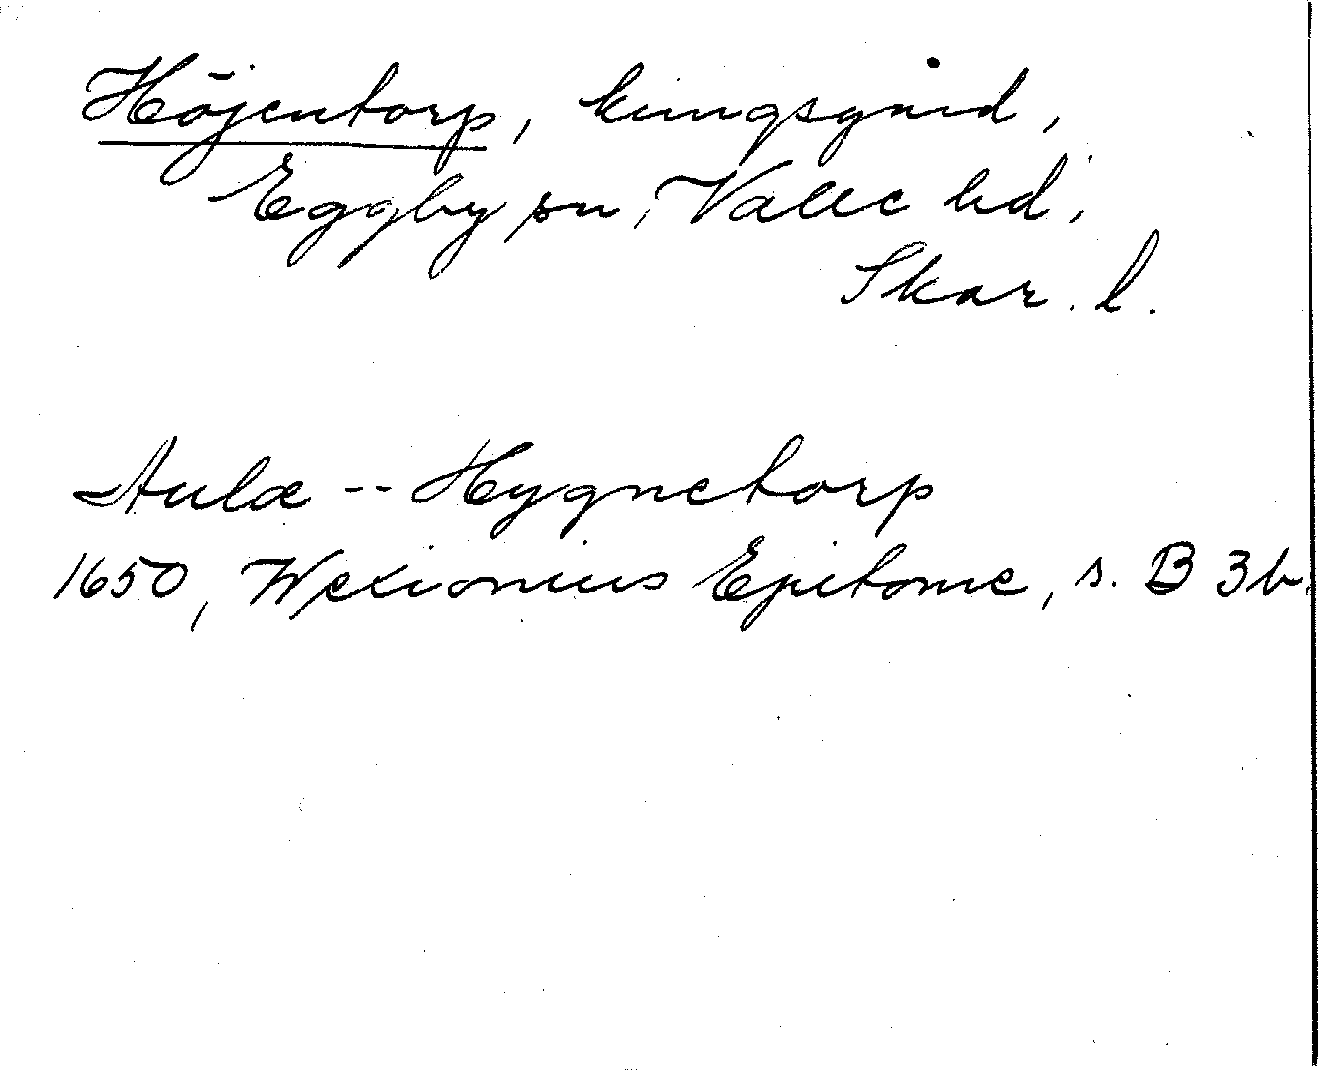 Höjentorp, kungsgård,
Eggby sn, Valle hd,
Skar. l.
Aulæ -- Hygnetorp
1650, Wexionius Epitome, s. B 3b.